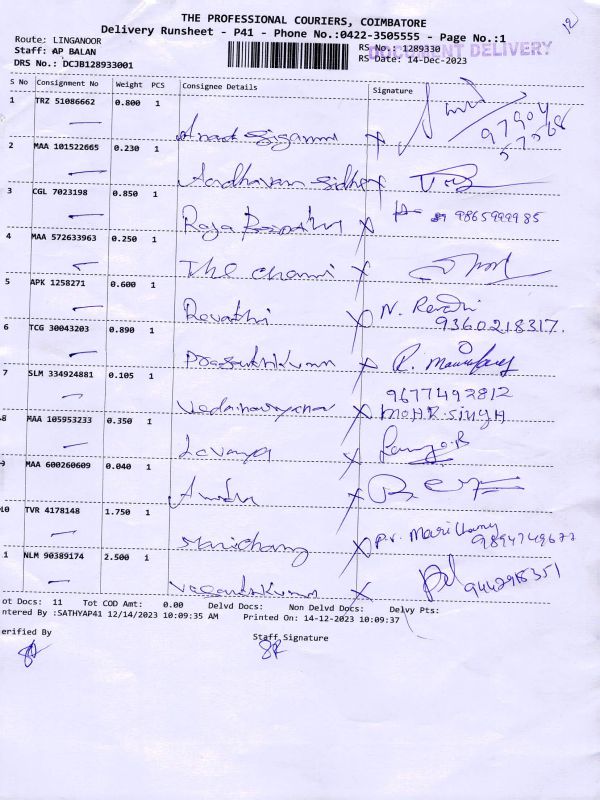 12
THE PROFESSIONAL COURIERS, COIMBATORE
Delivery Runsheet - P41 - Phone No.:0422-3505555 - Page No.:1
Route: LINGANOOR
RS No.: 1289330
DOCUMENT DELIVERY
Staff: AP BALAN
RS Date: 14-Dec-2023
DRS No.: DCJB128933001
S No Consignment No Weight PCS Consignee Details Signature
1 TRZ 51086662 0.800 1
97904
57068
2 MAA 101522665 0.230 1
Aadhavan
3 CGL 7023198 0.850 1
9865999985
Raja X
4 MAA 572633963 0.250 1
The Chennai X
5 APK 1258271 0.600 1
N. Revathi
Revathi X 9360218317.
6 TCG 30043203 0.890 1
X R.
7 SLM 334924881 0.105 1
9677492812
X MOHR.SINGH
8 MAA 105953233 0.350 1
Lavanya X
9 MAA 600260609 0.040 1
X
10 TVR 4178148 1.750 1
Marichamy X Pr. Marichamy
9894749677
1 NLM 90389174 2.500 1
9442915351
Vasanthakumar X
ot Docs: 11 Tot COD Amt: 0.00 Delvd Docs: Non Delvd Docs: Delvy Pts:
ntered By :SATHYAP41 12/14/2023 10:09:35 AM Printed On: 14-12-2023 10:09:37
erified By Staff Signature